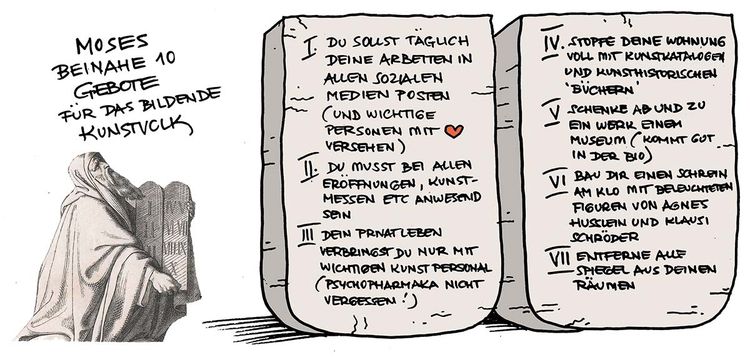 MOSES
BEINAHE 10
GEBOTE
FÜR DAS BILDENDE
KUNSTVOLK
I. DU SOLLST TÄGLICH
DEINE ARBEITEN IN
ALLEN SOZIALEN
MEDIEN POSTEN
(UND WICHTIGE
PERSONEN MIT ❤
VERSEHEN)
II. DU MUSST BEI ALLEN
ERÖFFNUNGEN, KUNST-
MESSEN ETC ANWESEND
SEIN
III DEIN PRIVATLEBEN
VERBRINGST DU NUR MIT
WICHTIGEN KUNSTPERSONAL
(PSYCHOPHARMAKA NICHT
VERGESSEN!)
IV. STOPFE DEINE WOHNUNG
VOLL MIT KUNSTKATALOGEN
UND KUNSTHISTORISCHEN
'BÜCHERN'
V SCHENKE AB UND ZU
EIN WERK EINEM
MUSEUM (KOMMT GUT
IN DER BIO)
VI BAU DIR EINEN SCHREIN
AM KLO MIT BELEUCHTETEN
FIGUREN VON AGNES
HUSSLEIN UND KLAUSI
SCHRÖDER
VII ENTFERNE ALLE
SPIEGEL AUS DEINEN
RÄUMEN